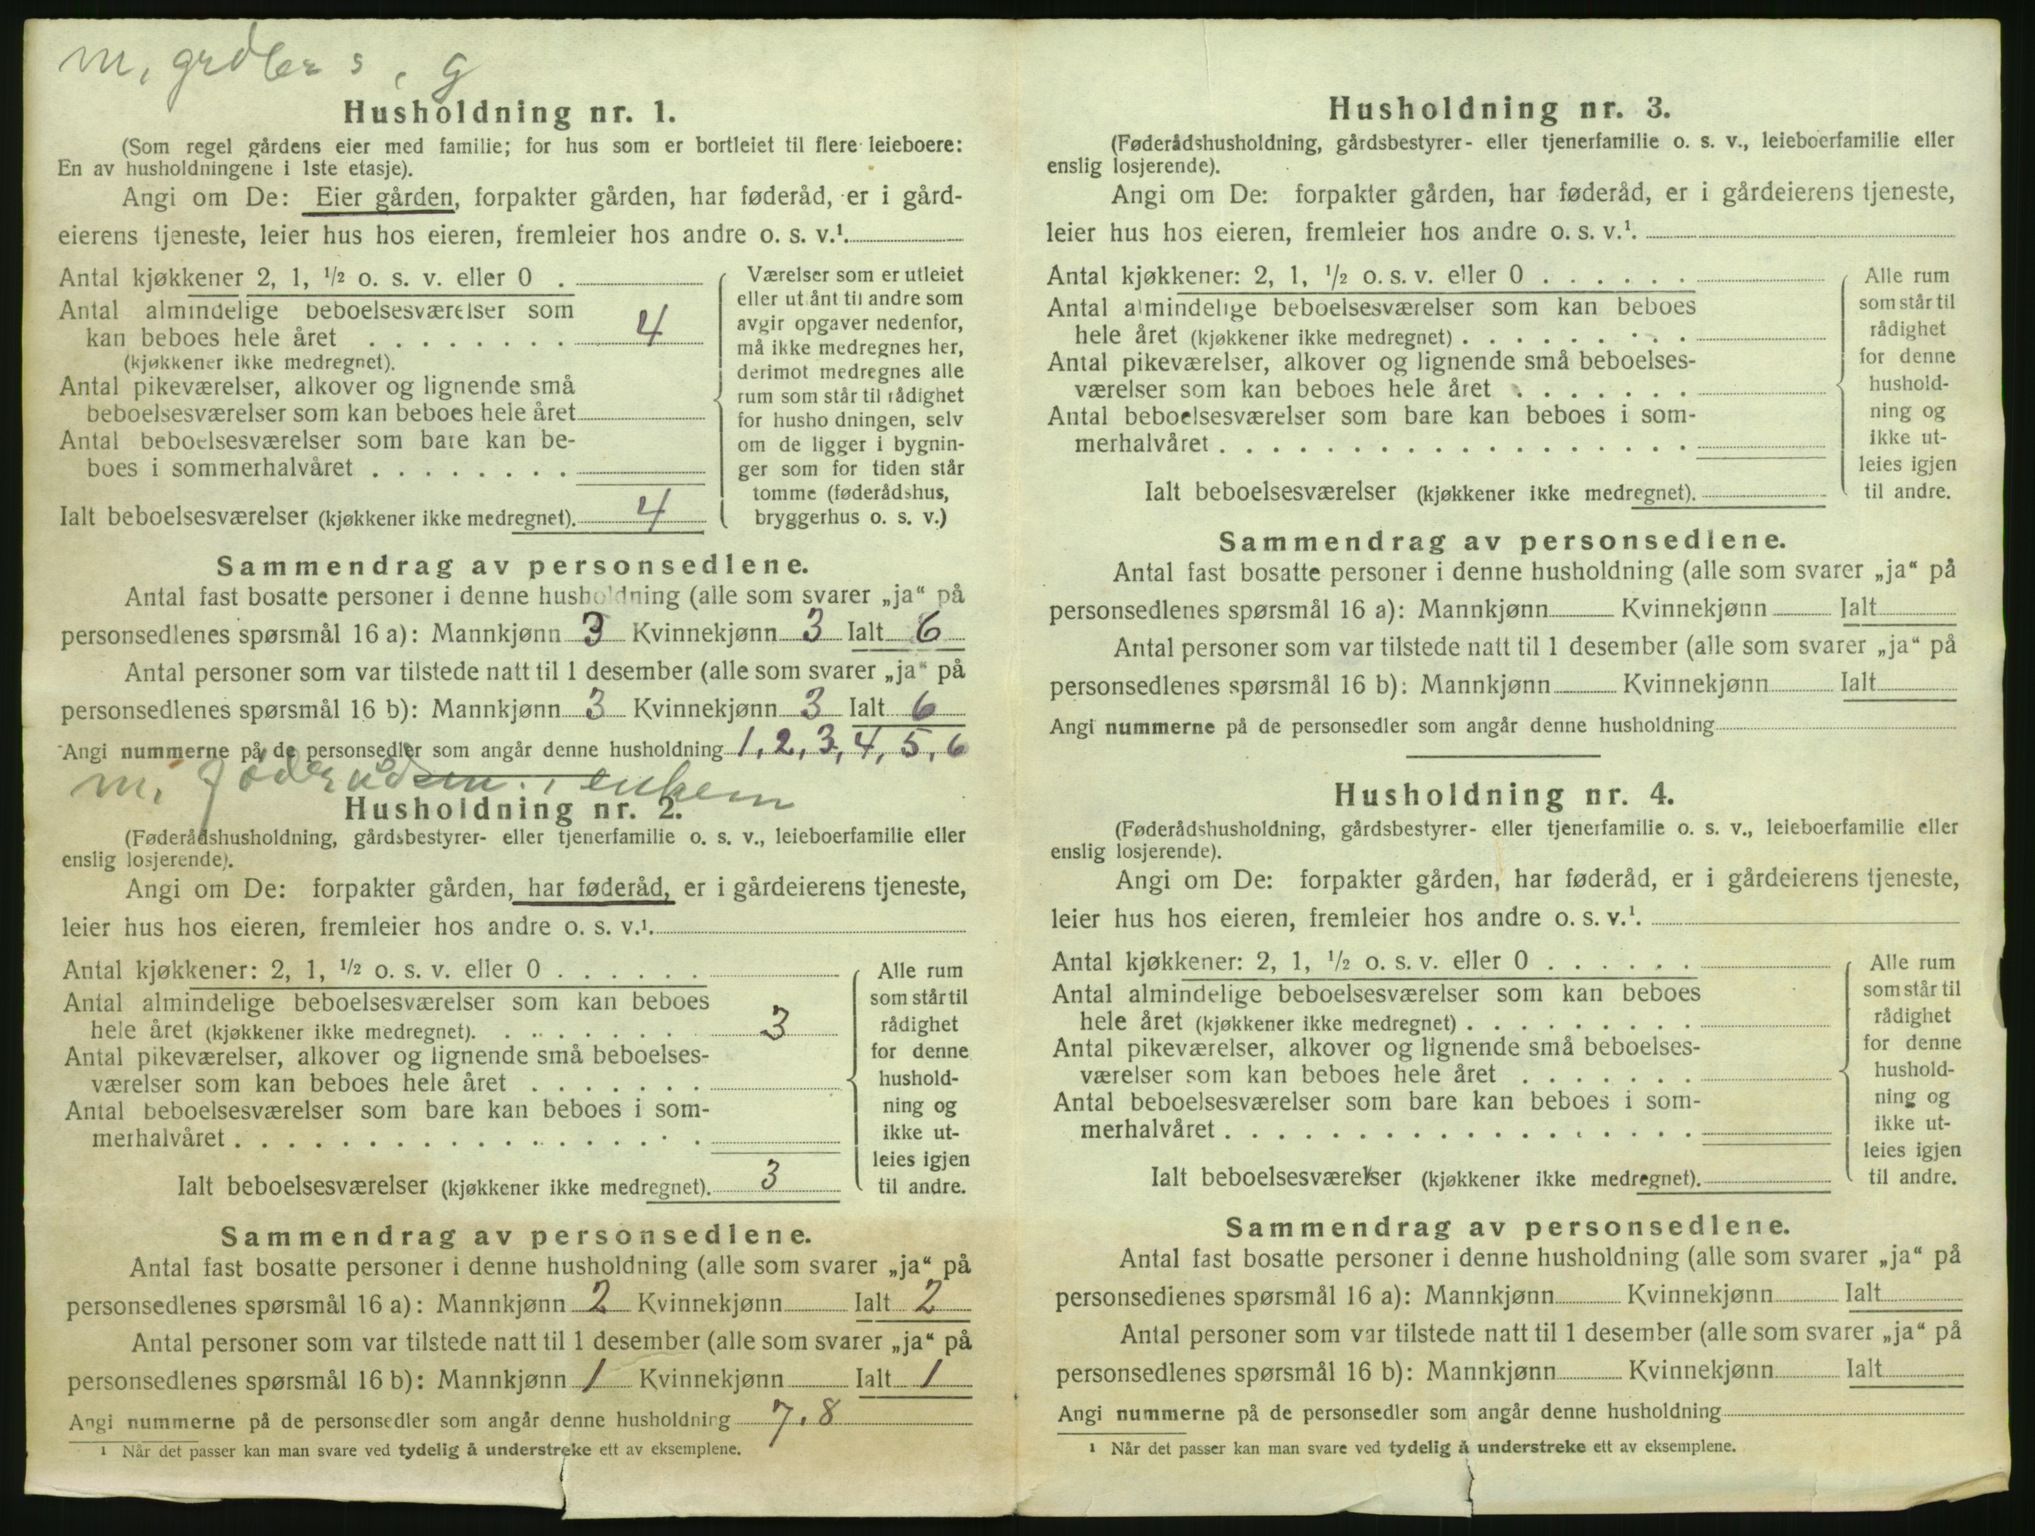 Husholdning nr. 1.
(Som regel gårdens eier med familie; for hus som er bortleiet til flere leieboere:
En av husholdningene i 1ste etasje).
Angi om De: Eier gården, forpakter gården, har føderåd, er i gård-
eierens tjeneste, leier hus hos eieren, fremleier hos andre o. s. v.¹.
Antal kjøkkener 2, 1, ½ o. s. v. eller 0 .
Antal almindelige beboelsesværelser som
kan beboes hele året . . . . . . . . 4
(kjøkkener ikke medregnet).
Antal pikeværelser, alkover og lignende små
beboelsesværelser som kan beboes hele året
Antal beboelsesværelser som bare kan be-
boes i sommerhalvåret . . . . . . .
Ialt beboelsesværelser (kjøkkener ikke medregnet). 4
Værelser som er utleiet
eller ut ånt til andre som
avgir opgaver nedenfor,
må ikke medregnes her,
derimot medregnes alle
rum som står til rådighet
for husho dningen, selv
om de ligger i bygnin-
ger som for tiden står
tomme (føderådshus,
bryggerhus o. s. v.)
Sammendrag av personsedlene.
Antal fast bosatte personer i denne husholdning (alle som svarer „ja“ på
personsedlenes spørsmål 16 a): Mannkjønn 3 Kvinnekjønn 3 Ialt 6
Antal personer som var tilstede natt til 1 desember (alle som svarer „ja“ på
personsedlenes spørsmål 16 b): Mannkjønn 3 Kvinnekjønn 3 Ialt 6
Angi nummerne på de personsedler som angår denne husholdning 1, 2, 3, 4, 5, 6
Husholdning nr. 2.
(Føderådshusholdning, gårdsbestyrer- eller tjenerfamilie o. s. v., leieboerfamilie eller
enslig losjerende).
Angi om De: forpakter gården, har føderåd, er i gårdeierens tjeneste,
leier hus hos eieren, fremleier hos andre o. s. v.¹.
Antal kjøkkener: 2, 1, ½ o. s. v. eller 0 . . . . . .
Antal almindelige beboelsesværelser som kan beboes
hele året (kjøkkener ikke medregnet). . . . . . . . . 3
Antal pikeværelser, alkover og lignende små beboelses-
værelser som kan beboes hele året . . . . . . .
Antal beboelsesværelser som bare kan beboes i som-
merhalvåret . . . . . . . . . . . . . . . . . .
Ialt beboelsesværelser (kjøkkener ikke medregnet). 3
Alle rum
som står til
rådighet
for denne
hushold-
ning og
ikke ut-
leies igjen
til andre.
Sammendrag av personsedlene.
Antal fast bosatte personer i denne husholdning (alle som svarer „ja“ på
personsedlenes spørsmål 16 a): Mannkjønn 2 Kvinnekjønn Ialt 2
Antal personer som var tilstede natt til 1 desember (alle som svarer „ja“ på
personsedlenes spørsmål 16 b): Mannkjønn 1 Kvinnekjønn Ialt 1
Angi nummerne på de personsedler som angår denne husholdning 7, 8
¹ Når det passer kan man svare ved tydelig å understreke ett av eksemplene.
Husholdning nr. 3.
(Føderådshusholdning, gårdsbestyrer- eller tjenerfamilie o. s. v., leieboerfamilie eller
enslig losjerende).
Angi om De: forpakter gården, har føderåd, er i gårdeierens tjeneste,
leier hus hos eieren, fremleier hos andre o. s. v.¹.
Antal kjøkkener: 2, 1, ½ o. s. v. eller 0 . . . . . .
Antal almindelige beboelsesværelser som kan beboes
hele året (kjøkkener ikke medregnet) . . . . . . . . .
Antal pikeværelser, alkover og lignende små beboelses-
værelser som kan beboes hele året . . . . . . .
Antal beboelsesværelser som bare kan beboes i som-
merhalvåret . . . . . . . . . . . . . . . . . .
Ialt beboelsesværelser (kjøkkener ikke medregnet).
Alle rum
som står til
rådighet
for denne
hushold-
ning og
ikke ut-
leies igjen
til andre.
Sammendrag av personsedlene.
Antal fast bosatte personer i denne husholdning (alle som svarer „ja“ på
personsedlenes spørsmål 16 a): Mannkjønn Kvinnekjønn Ialt
Antal personer som var tilstede natt til 1 desember (alle som svarer „ja“ på
personsedlenes spørsmål 16 b): Mannkjønn Kvinnekjønn Ialt
Angi nummerne på de personsedler som angår denne husholdning
Husholdning nr. 4.
(Føderådshusholdning, gårdsbestyrer- eller tjenerfamilie o. s. v., leieboerfamilie eller
enslig losjerende).
Angi om De: forpakter gården, har føderåd, er i gårdeierens tjeneste,
leier hus hos eieren, fremleier hos andre o. s. v.¹.
Antal kjøkkener: 2, 1, ½ o. s. v. eller 0 . . . . . .
Antal almindelige beboelsesværelser som kan beboes
hele året (kjøkkener ikke medregnet) . . . . . . . . .
Antal pikeværelser, alkover og lignende små beboelses-
værelser som kan beboes hele året . . . . . . .
Antal beboelsesværelser som bare kan beboes i som-
merhalvåret . . . . . . . . . . . . . . . . . .
Ialt beboelsesværelser (kjøkkener ikke medregnet).
Alle rum
som står til
rådighet
for denne
hushold-
ning og
ikke ut-
leies igjen
til andre.
Sammendrag av personsedlene.
Antal fast bosatte personer i denne husholdning (alle som svarer „ja“ på
personsedlenes spørsmål 16 a): Mannkjønn Kvinnekjønn Ialt
Antal personer som var tilstede natt til 1 desember (alle som svarer „ja“ på
personsedlenes spørsmål 16 b): Mannkjønn Kvinnekjønn Ialt
Angi nummerne på de personsedler som angår denne husholdning
¹ Når det passer kan man svare ved tydelig å understreke ett av eksemplene.